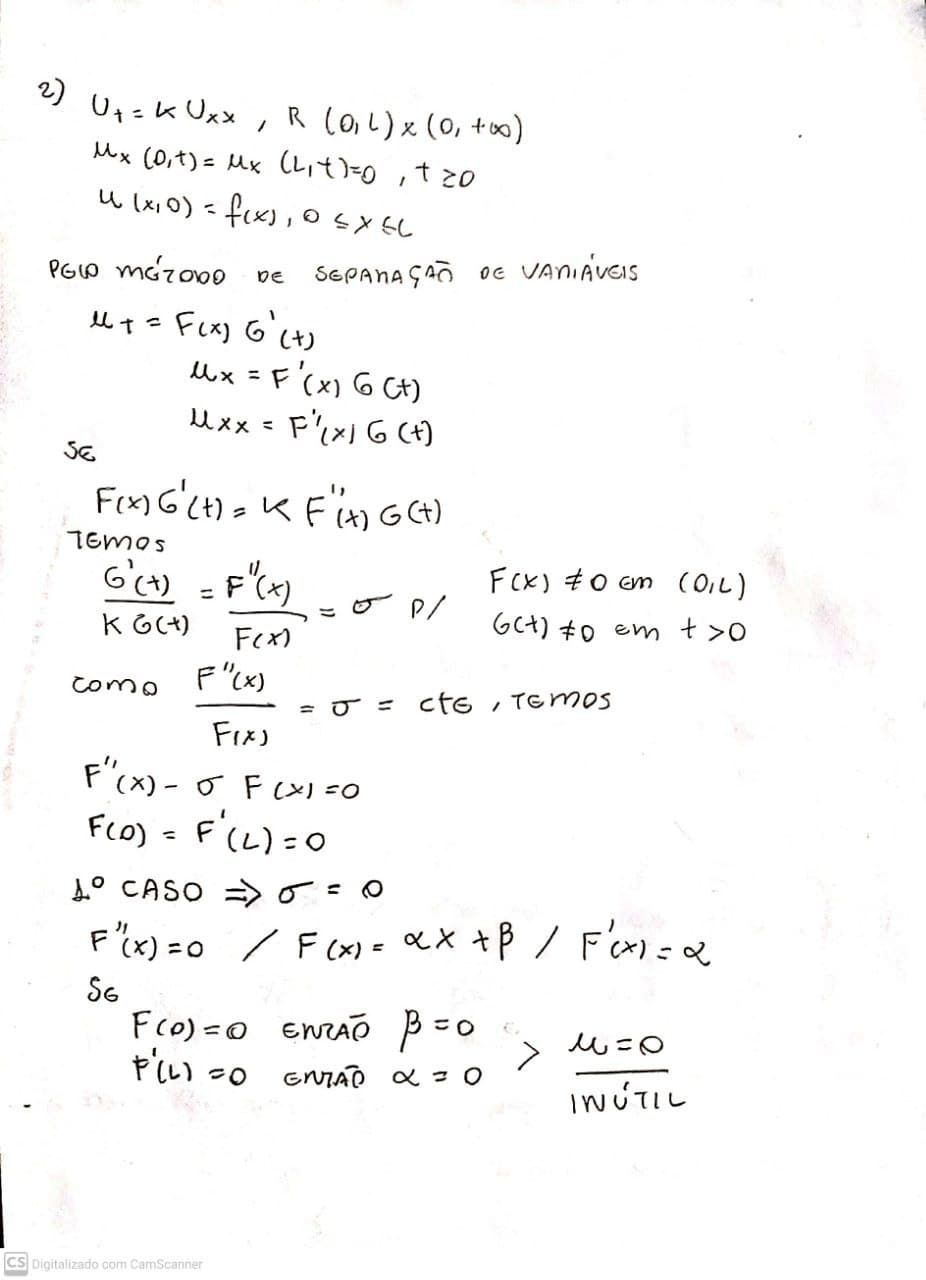 2) Ut = K Uxx , R (0,L) x (0, +∞)
Ux (0,t) = Ux (L,t)=0 , t ≥0
U (x,0) = f(x), 0 ≤ X ≤ L
PELO MÉTODO DE SEPARAÇÃO DE VARIÁVEIS
Ut = F(x) G'(t)
Ux = F'(x) G(t)
Uxx = F''(x) G(t)
SE
F(x) G'(t) = K F''(x) G(t)
TEMOS
G'(t)/K G(t) = F''(x)/F(x) = σ p/ F(x) ≠0 em (0,L)
G(t) ≠0 em t >0
como F''(x)/F(x) = σ = cte , TEMOS
F''(x) - σ F(x) =0
F(0) = F'(L) =0
1º CASO ⇒ σ = 0
F''(x) =0 / F(x) = αX +β / F'(x) = α
SE
F(0) =0 ENTÃO β =0
F'(L) =0 ENTÃO α =0 > u=0
INÚTIL
CS Digitalizado com CamScanner